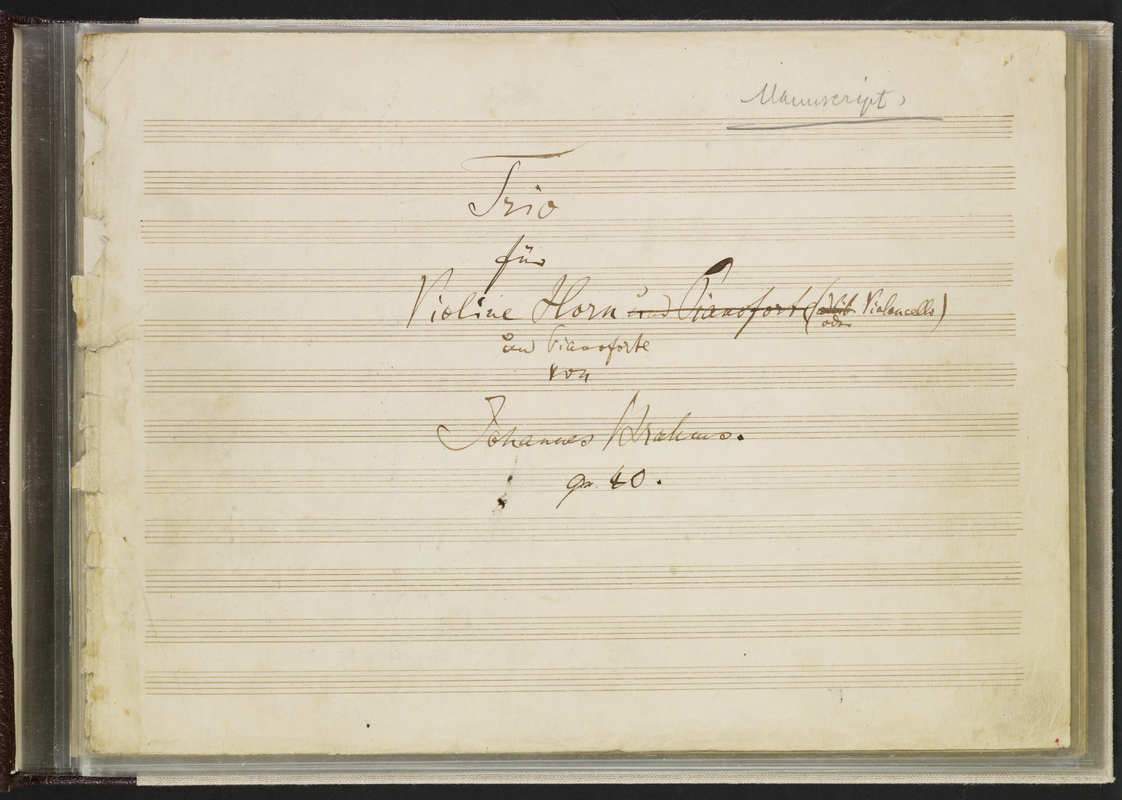 Manuscript
Trio
für
Violine Horn und Pianoforte (ad lib Violoncello)
oder
und Pianoforte
von
Johannes Brahms.
op. 40.